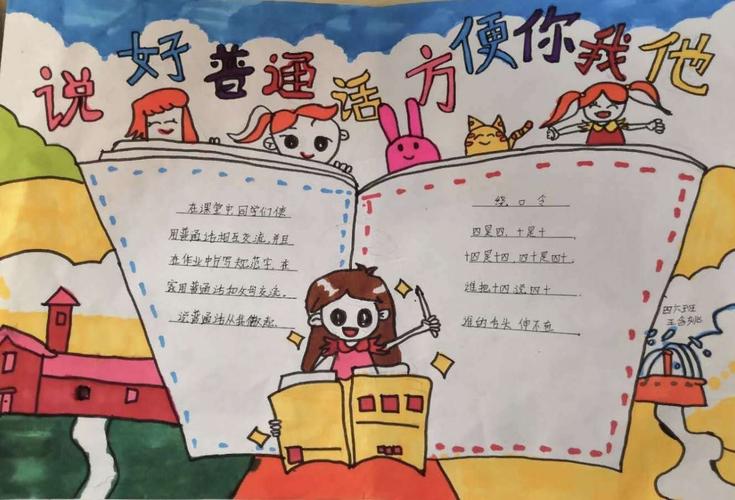 说好普通话方便你我他
在课堂中,同学们使
用普通话相互交流,并且
在作业中书写规范字,在
家用普通话和父母交流。
说普通话从我做起。
绕口令
四是四,十是十,
十四是十四,四十是四十,
谁把十四说四十,
谁的舌头伸不直
四六班